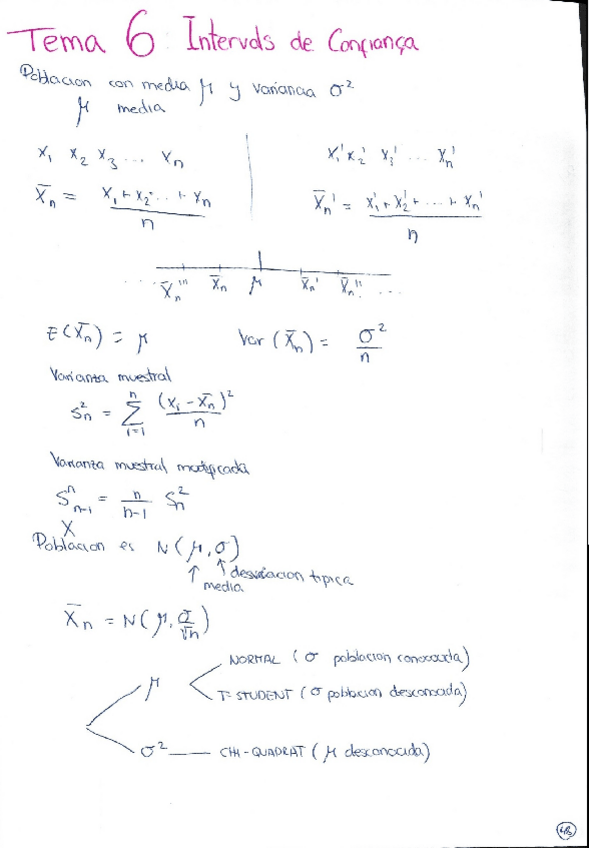 Tema 6 : Intervals de Confiança
Poblacion con media μ y variancia σ²
μ media
x₁ x₂ x₃ ... xₙ
x₁' x₂' x₃' ... xₙ'
X̄ₙ = (x₁ + x₂ ... + xₙ) / n
X̄ₙ' = (x₁' + x₂' + ... + xₙ') / n
... X̄ₙ''' X̄ₙ μ X̄ₙ' X̄ₙ'' ...
E(X̄ₙ) = μ Var(X̄ₙ) = σ²/n
Varianza muestral
Sₙ² = Σᵢ₌₁ⁿ (xᵢ - X̄ₙ)² / n
Varianza muestral modificada
Sⁿₙ₋₁ = n/(n-1) Sₙ²
X
Poblacion es N(μ, σ)
↑ media ↑ desviacion tipica
X̄ₙ = N(μ, σ/√n)
μ
NORMAL (σ poblacion conocida)
T-STUDENT (σ poblacion desconocida)
σ² — CHI-QUADRAT (μ desconocida)